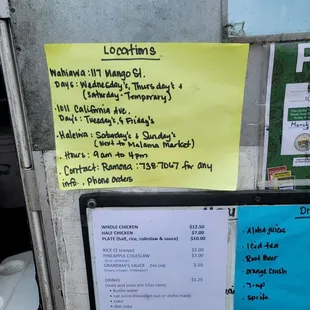 Locations
Wahiawa: 117 Mango St.
Days: Wednesday's, Thursday's +
(Saturday - Temporary)
. 1011 California Ave.
Days: Tuesday's, & Friday's
. Haleiwa: Saturday's & Sunday's
(Next to Malama Market)
. Hours: 9am to 4pm
. Contact: Ramona: 738-7067 for any
info... Phone orders
WHOLE CHICKEN $12.50
HALF CHICKEN $7.00
PLATE (half, rice, coleslaw & sauce) $10.00
RICE (2 scoops) $2.00
PINEAPPLE COLESLAW $3.00
GRANDMA'S SAUCE - 2oz cup $.50
DRINKS $1.25
Bottle water
Coke
Diet coke
Dr
Aloha juices
Iced tea
Root Beer
Orange Crush
7-up
Sprite